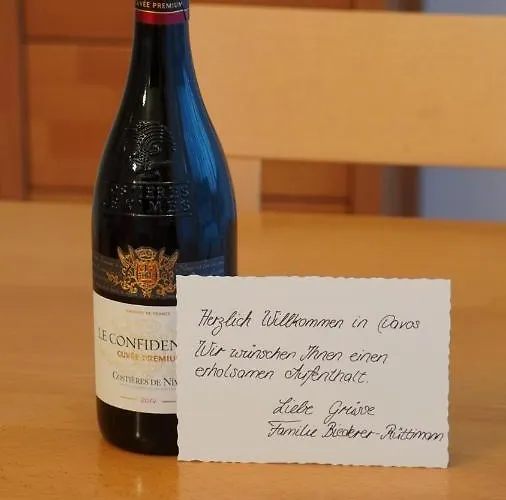 CUVÉE PREMIUM
COSTIÈRES
DE NIMES
LE CONFIDEN
CUVÉE PREMIU
COSTIÈRES DE NÎ
2014
Herzlich Willkommen in Davos
Wir wünschen Ihnen einen
erholsamen Aufenthalt.
Liebe Grüsse
Familie Biederer-Rüttimann